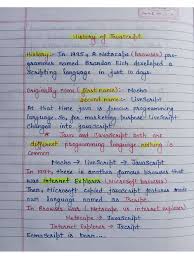 History of Javascript
History:- In 1995, A Netscape (browser) pro-
grammer named Brandan Eich developed a
Scripting language in just 10 days.
Originally name (first name):- Mocha
second name:- LiveScript
At that time Java is famous programming
language. So, for marketing purpose LiveScript
Changed into JavaScript.
Java and JavaScript both are
different programming language nothing is
Common
Mocha → LiveScript → JavaScript
In 1997, there is another famous browser that
was Internet Explorer (Microsoft browser)
Then Microsoft copied JavaScript features made
own language named as JScript.
In Browser War (Netscape vs internet explorer)
Netscape → JavaScript
Internet Explorer → JScript
Ecmascript is born....